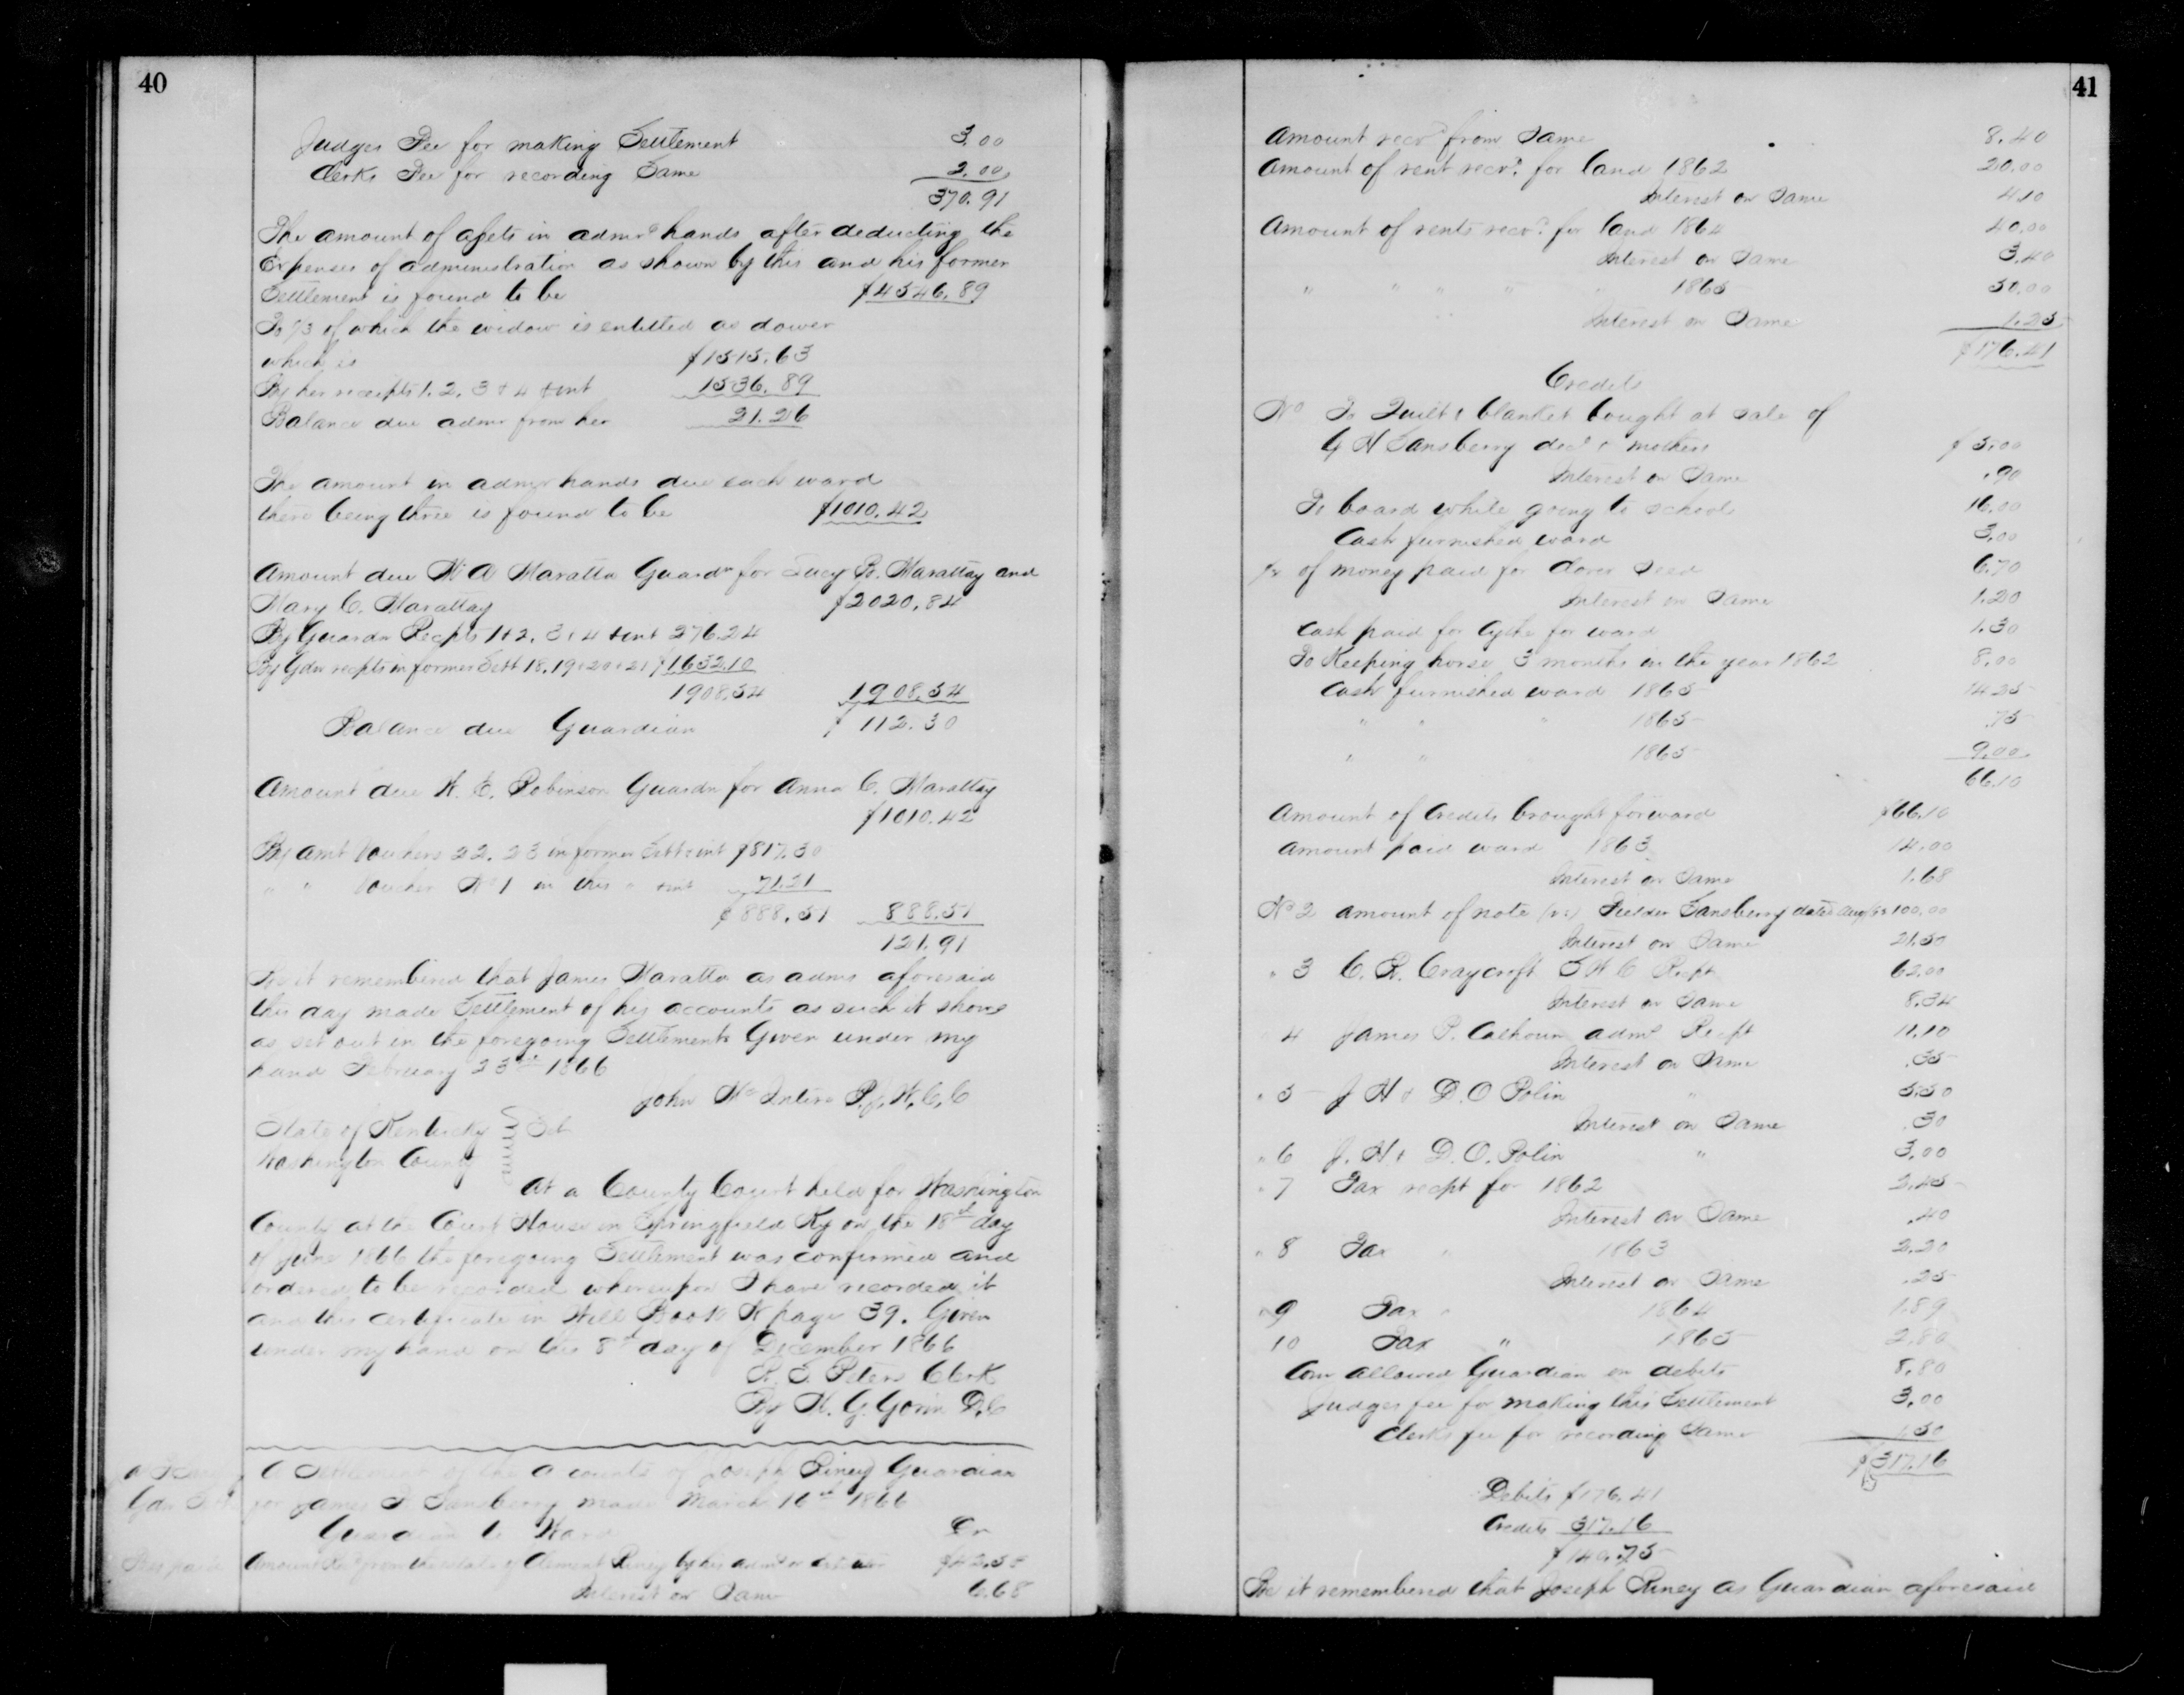 40
Judges Fee for making Settlement 3.00
Clerks Fee for recording Same 2.00
370.91
The amount of assets in admrs hands after deducting the
Expenses of administration as shown by this and his former
Settlement is found to be $4546.89
To 1/3 of which the widow is entitled as dower
which is $1515.63
By her receipts 1. 2. 3 & 4 & int 1536.89
Balance due admr from her 21.26
The amount in admr hands due each ward
there being three is found to be $1010.42
Amount due W A Maratta Guardn for Lucy B. Marattay and
Mary C. Marattay $2020.84
By Guardn Recpts 1 & 2. 3 & 4 & int 276.24
By Gdn recpts in former Sett 18. 19 & 20 & 21 $1632.10
1908.34 1908.54
Balance due Guardian $112.30
Amount due W. E. Robinson Guardn for Anna C. Marattay
$1010.42
By amt Vouchers 22. 23 in former Sett & int $817.30
" " Voucher No 1 in this " & int 71.21
$888.51 888.51
121.91
Be it remembered that James Maratta as admr aforesaid
this day made Settlement of his accounts as such it shows
as set out in the foregoing Settlements Given under my
hand February 23rd 1866
John McIntire P.J.W.C.C
State of Kentucky } Sct
Washington County
At a County Court held for Washington
County at the Court House in Springfield Ky on the 18th day
of June 1866 the foregoing Settlement was confirmed and
ordered to be recorded whereupon I have recorded it
and this certificate in Will Book N page 39. Given
under my hand on this 8th day of December 1866
Peters Clerk
By W. G. Gorin D.C
A Settlement of the accounts of Joseph Riney Guardian
for James F Sansberry made March 16th 1866
Guardian to Ward Dr
Amount Recd from the estate of Clement Riney by his admr $42.58
Interest on Same 6.68
41
Amount recvd from Same 8.40
Amount of rent recvd for land 1862 20.00
Interest on Same 4.10
Amount of rents recvd for land 1864 40.00
Interest on Same 3.40
" " " " " 1865 50.00
Interest on Same 1.25
$176.41
Credits
No To Quilt & blanket bought at sale of
G H Sansberry decd & mothers $5.00
Interest on Same .90
To board while going to school 16.00
Cash furnished ward 3.00
of money paid for Clover Seed 6.70
Interest on Same 1.20
Cash paid for Cythe for ward 1.30
To Keeping horse 3 months in the year 1862 8.00
Cash furnished ward 1865 14.25
" " " 1865 .75
" " 1865 9.00
66.10
Amount of Credits brought forward $66.10
Amount paid ward 1863 14.00
Interest on Same 1.68
No 2 amount of note Fielder Sansberry dated Aug 100.00
Interest on Same 21.50
" 3 C. R. Craycroft S W C Recpt 62.00
Interest on Same 8.34
4 James P. Calhoun admr Recpt 11.10
Interest on Same .35
" 5 J H & D. O Polin " 5.50
Interest on Same .30
" 6 J. H. & D. O. Polin " 3.00
" 7 Tax recpt for 1862 2.45
Interest on Same .40
" 8 Tax " 1863 2.20
Interest on Same .25
" 9 Tax " 1864 1.89
10 Tax " 1865 2.80
Com allowed Guardian on debits 8.80
Judges fee for making this Settlement 3.00
Clerks fee for recording Same 1.50
$317.16
Debits $176.41
Credits 317.16
$140.75
Be it remembered that Joseph Riney as Guardian aforesaid